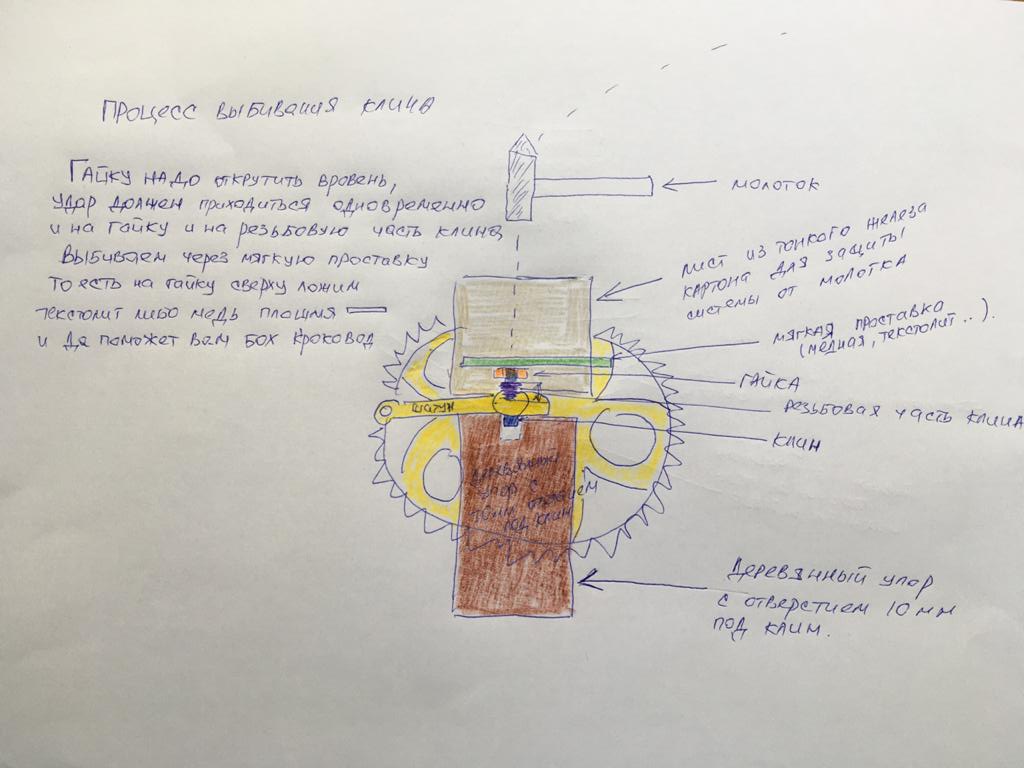 ПРОЦЕСС ВЫБИВАНИЯ КЛИНА
ГАЙКУ НАДО ОТКРУТИТЬ ВРОВЕНЬ,
УДАР ДОЛЖЕН ПРИХОДИТЬСЯ ОДНОВРЕМЕННО
И НА ГАЙКУ И НА РЕЗЬБОВУЮ ЧАСТЬ КЛИНА
ВЫБИВАЕМ ЧЕРЕЗ МЯГКУЮ ПРОСТАВКУ
ТО ЕСТЬ НА ГАЙКУ СВЕРХУ ЛОЖИМ
ТЕКСТОЛИТ ЛИБО МЕДЬ ПЛАШМЯ
И ДА ПОМОЖЕТ ВАМ БОХ КРОКОВОД
МОЛОТОК
ЛИСТ ИЗ ТОНКОГО ЖЕЛЕЗА
КАРТОНА ДЛЯ ЗАЩИТЫ
СИСТЕМЫ ОТ МОЛОТКА
МЯГКАЯ ПРОСТАВКА
(МЕДНАЯ, ТЕКСТОЛИТ..).
ГАЙКА
РЕЗЬБОВАЯ ЧАСТЬ КЛИНА
КЛИН
ШАТУН
УПОР С
ПОД КЛИН
ДЕРЕВЯННЫЙ УПОР
С ОТВЕРСТИЕМ 10 ММ
ПОД КЛИН.